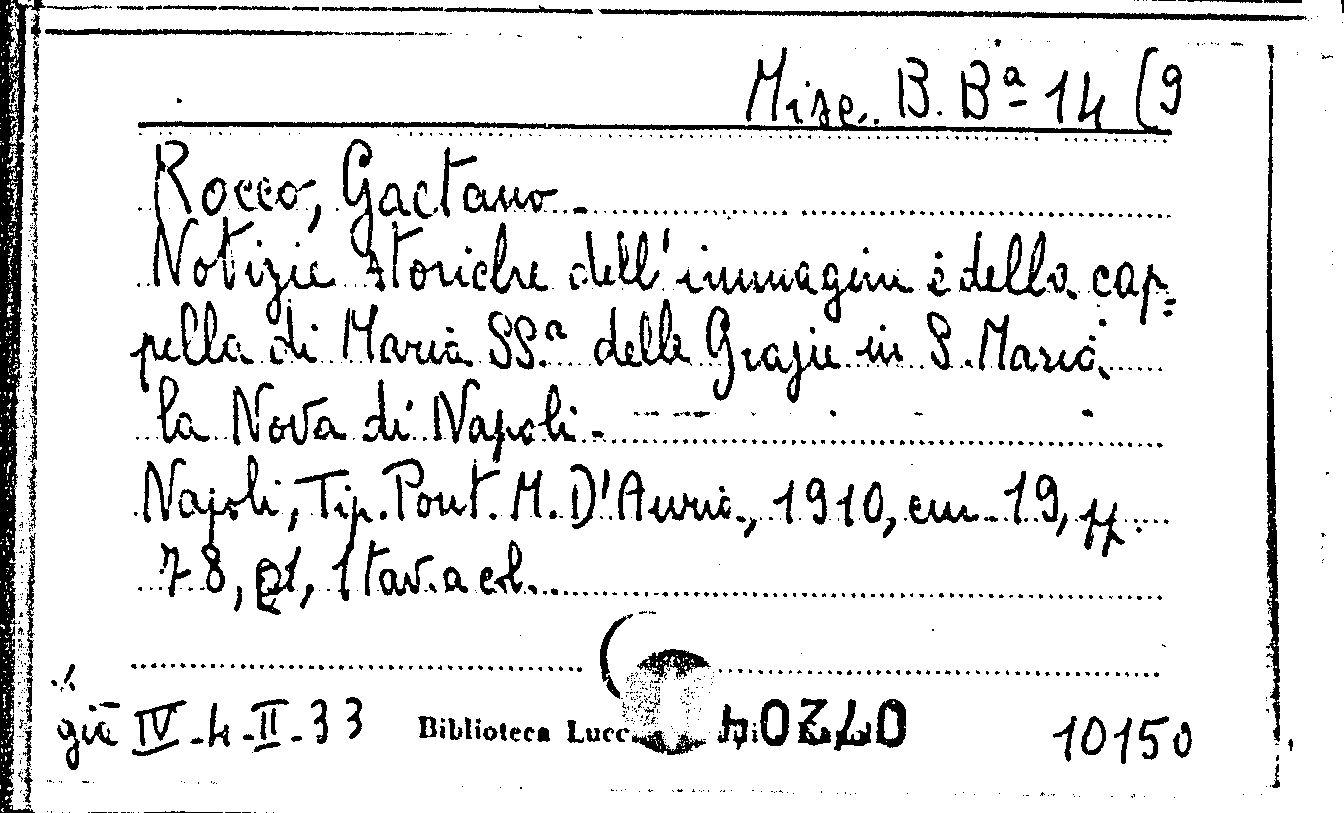 Misc. B. Bª 14 (9
Rocco, Gaetano.
Notizie storiche dell'immagine e della cap=
pella di Maria SS.ª delle Grazie in S. Maria
la Nova di Napoli.
Napoli, Tip. Pont. M. D'Auria, 1910, cm. 19, pp.
78, 1 tav. a col.
già IV-4-II-33 Biblioteca Lucc 40320 10150